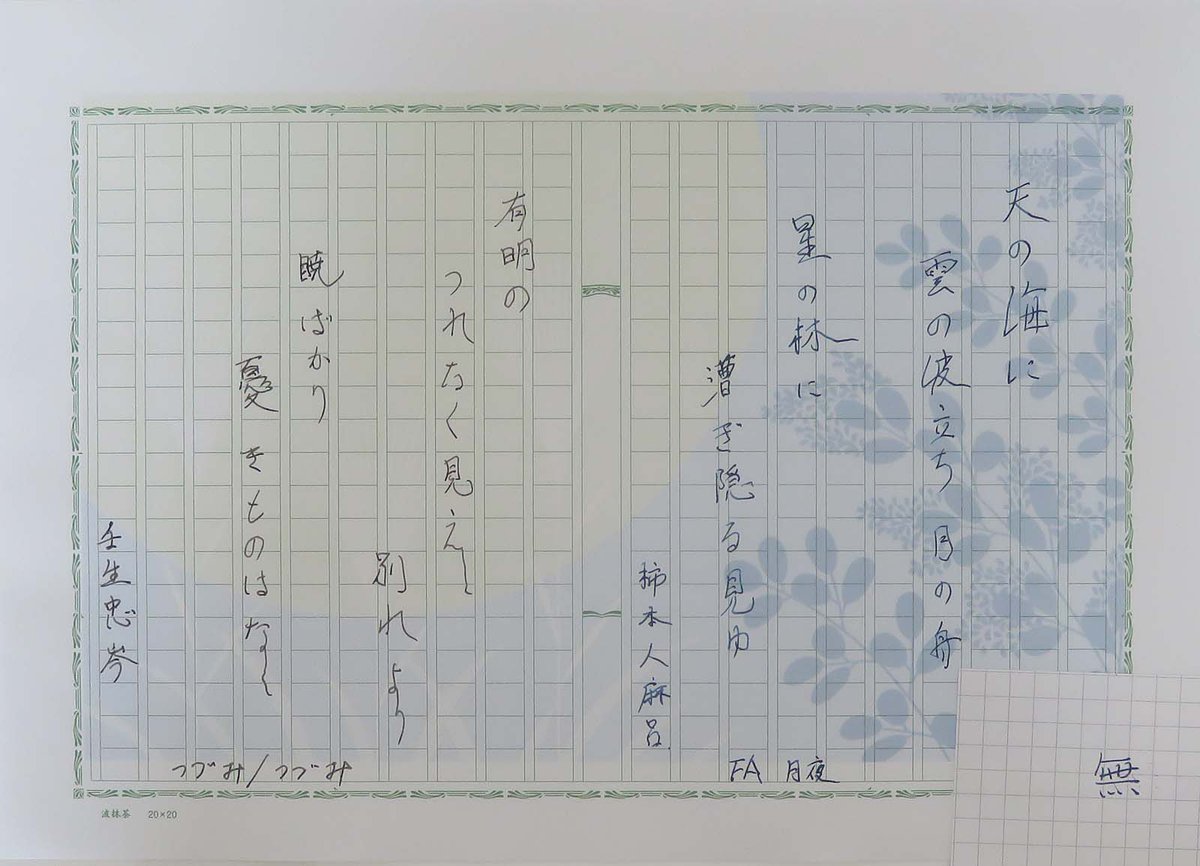 天の海に
雲の波立ち 月の舟
星の林に
漕ぎ隠る見ゆ
柿本人麻呂
有明の
つれなく見えし
別れより
暁ばかり
憂きものはなし
壬生忠岑
FA 月夜
つづみ/つづみ
無
波抹茶 20×20